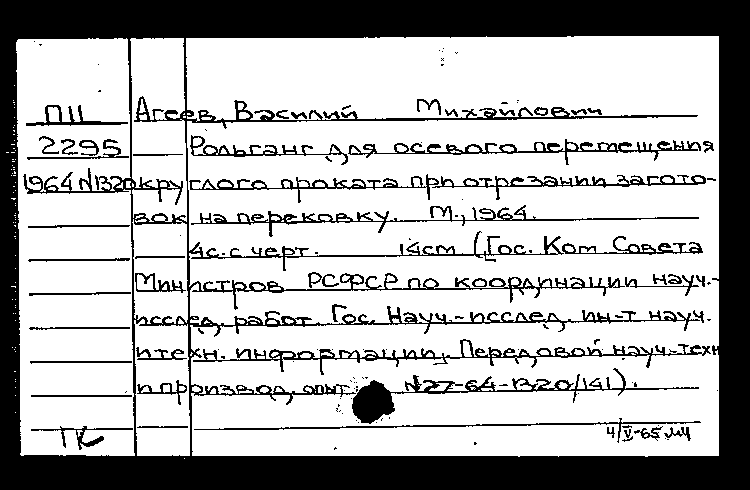 ПII Агеев, Василий Михайлович
2295 Рольганг для осевого перемещения
1964 N1320 круглого проката при отрезании загото-
вок на перековку. М., 1964.
4с. с черт. 14см (Гос. Ком. Совета
Министров РСФСР по координации науч.-
исслед. работ. Гос. Науч.-исслед. ин-т науч.
и техн. информации. Передовой науч.-техн
и производ. опыт N27-64-1320/141).
ГК 4/V-65